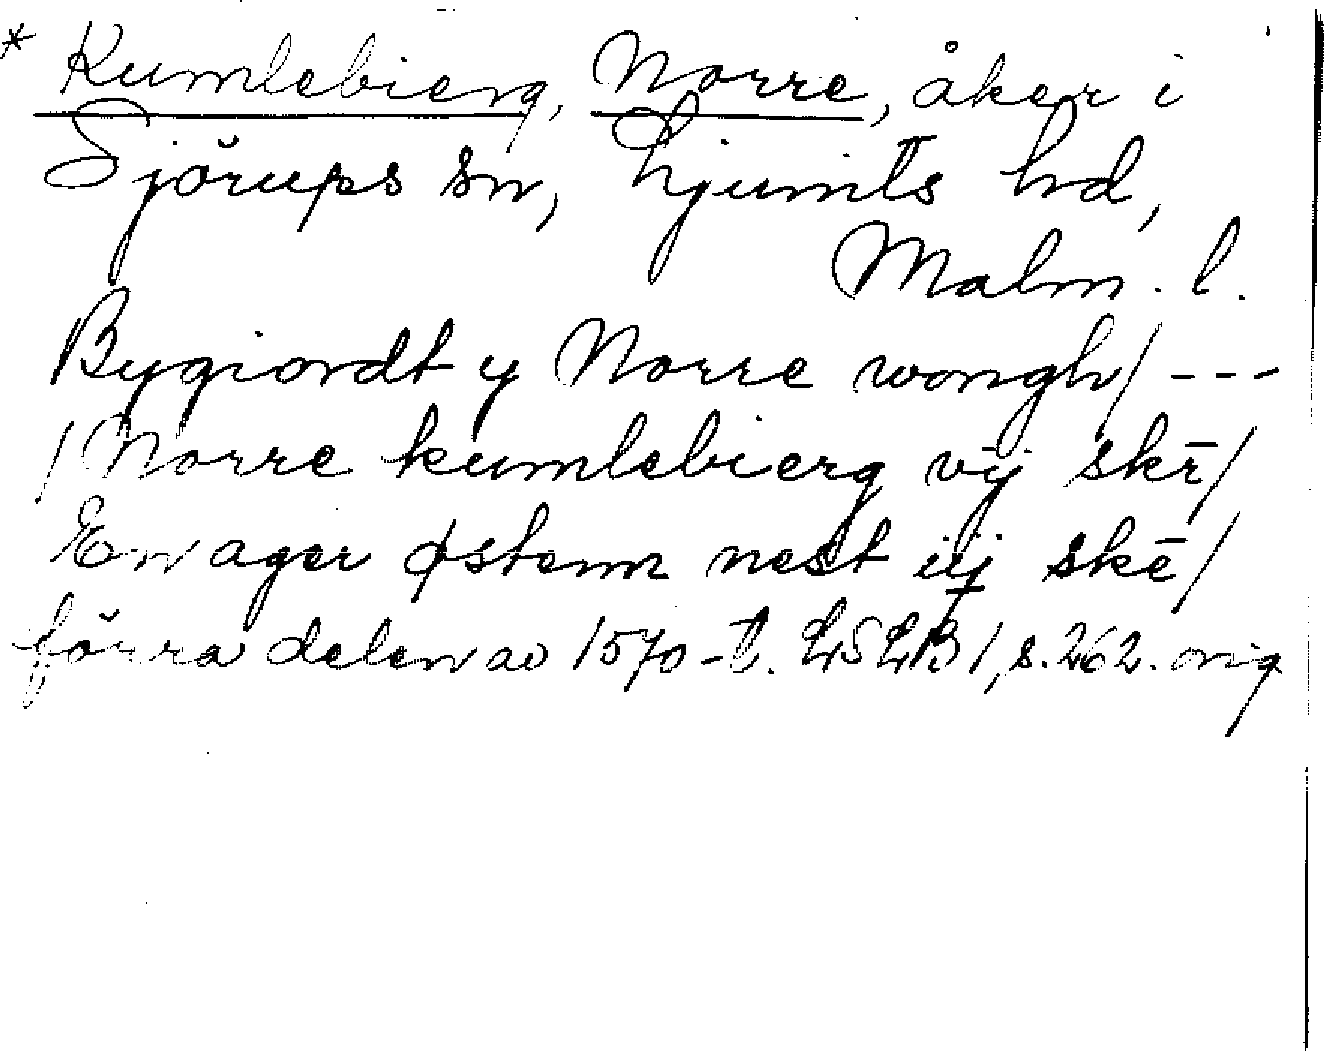 * Kumlebierg, Norre, åker i
Sjörups sn, Ljunits hd,
Malm. l.
Bygiordt y Norre wongh/ ---
/ Norre kumlebierg vij skē/
En ager østenn nest iij skē/
förra delen av 1570-t. LSLB 1, s. 262. orig